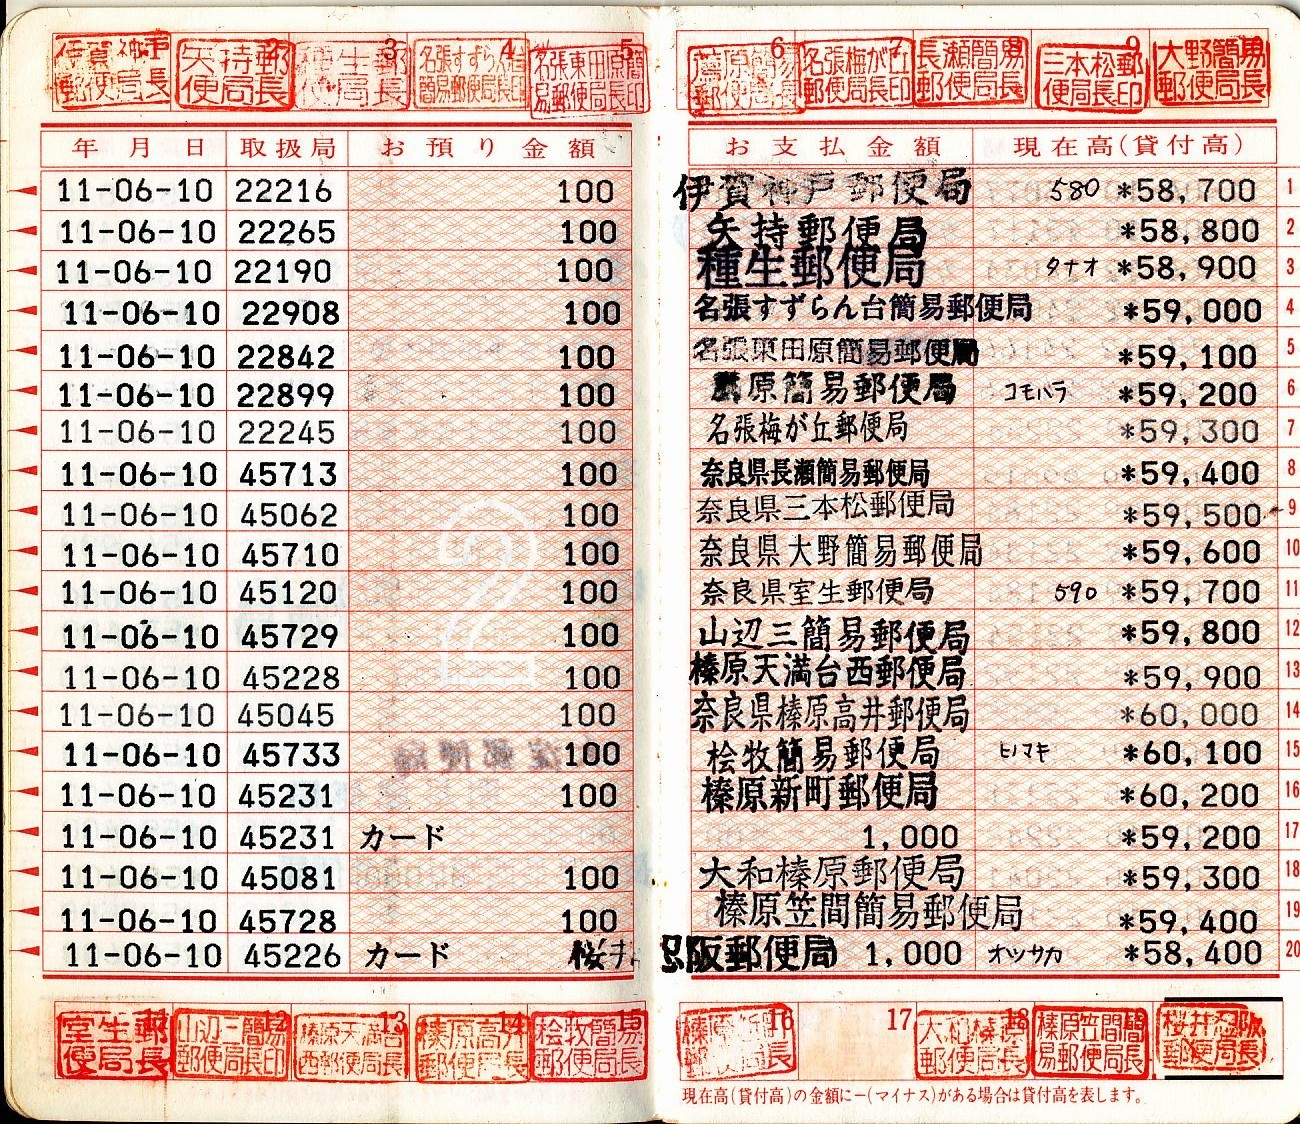 伊賀神戸郵便局長
矢持郵便局長
種生郵便局長
名張すずらん台簡易郵便局長印
名張東田原簡易郵便局長印
榛原簡易郵便局長
名張梅が丘郵便局長印
長瀬簡易郵便局長
三本松郵便局長印
大野簡易郵便局長
年月日 取扱局 お預り金額 お支払金額 現在高(貸付高)
11-06-10 22216 100 伊賀神戸郵便局 580 *58,700 1
11-06-10 22265 100 矢持郵便局 *58,800 2
11-06-10 22190 100 種生郵便局 タナオ *58,900 3
11-06-10 22908 100 名張すずらん台簡易郵便局 *59,000 4
11-06-10 22842 100 名張東田原簡易郵便局 *59,100 5
11-06-10 22899 100 原簡易郵便局 コモハラ *59,200 6
11-06-10 22245 100 名張梅が丘郵便局 *59,300 7
11-06-10 45713 100 奈良県長瀬簡易郵便局 *59,400 8
11-06-10 45062 100 奈良県三本松郵便局 *59,500 9
11-06-10 45710 100 奈良県大野簡易郵便局 *59,600 10
11-06-10 45120 100 奈良県室生郵便局 590 *59,700 11
11-06-10 45729 100 山辺三簡易郵便局 *59,800 12
11-06-10 45228 100 榛原天満台西郵便局 *59,900 13
11-06-10 45045 100 奈良県榛原高井郵便局 *60,000 14
11-06-10 45733 100 桧牧簡易郵便局 ヒノマキ *60,100 15
11-06-10 45231 100 榛原新町郵便局 *60,200 16
11-06-10 45231 カード 1,000 *59,200 17
11-06-10 45081 100 大和榛原郵便局 *59,300 18
11-06-10 45728 100 榛原笠間簡易郵便局 *59,400 19
11-06-10 45226 カード 桜井忍阪郵便局 1,000 オッサカ *58,400 20
2
室生郵便局長
山辺三簡易郵便局長印
榛原天満台西郵便局長
榛原高井郵便局長
桧牧簡易郵便局長
16
17
大和榛原郵便局長
榛原笠間簡易郵便局長
桜井忍阪郵便局長
現在高(貸付高)の金額に−(マイナス)がある場合は貸付高を表します。